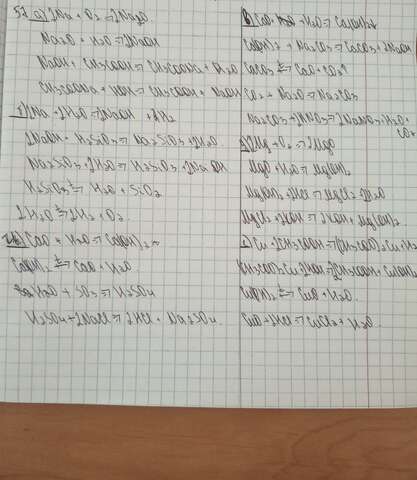 52 а) 2Na + O2 => 2Na2O.
Na2O + H2O => 2NaOH
NaOH + CH3COOH => CH3COONa + H2O
CH3COONa + HOH => CH3COOH + NaOH
2Na + 2H2O => 2NaOH + H2
2NaOH + H2SiO3 => Na2SiO3 + 2H2O.
Na2SiO3 + 2H2O => H2SiO3 + 2NaOH
H2SiO3 => H2O + SiO2
2H2O => 2H2 + O2.
CaO + H2O => Ca(OH)2
Ca(OH)2 => CaO + H2O
H2O + SO3 => H2SO4
H2SO4 + 2NaCl => 2HCl + Na2SO4.
CaO + H2O => Ca(OH)2
Ca(OH)2 + Na2CO3 => CaCO3 + 2NaOH
CaCO3 => CaO + CO2↑
CO2 + Na2O => Na2CO3
Na2CO3 + 2HNO3 => 2NaNO3 + H2O +
CO2
2Mg + O2 => 2MgO
MgO + H2O => Mg(OH)2
Mg(OH)2 + 2HCl => MgCl2 + 2H2O
MgCl2 + 2KOH => 2KCl + Mg(OH)2
Cu + 2CH3COOH => (CH3COO)2Cu + H2
(CH3COO)2Cu + 2HOH => 2CH3COOH + Cu(OH)2
Cu(OH)2 => CuO + H2O.
CuO + 2HCl => CuCl2 + H2O.